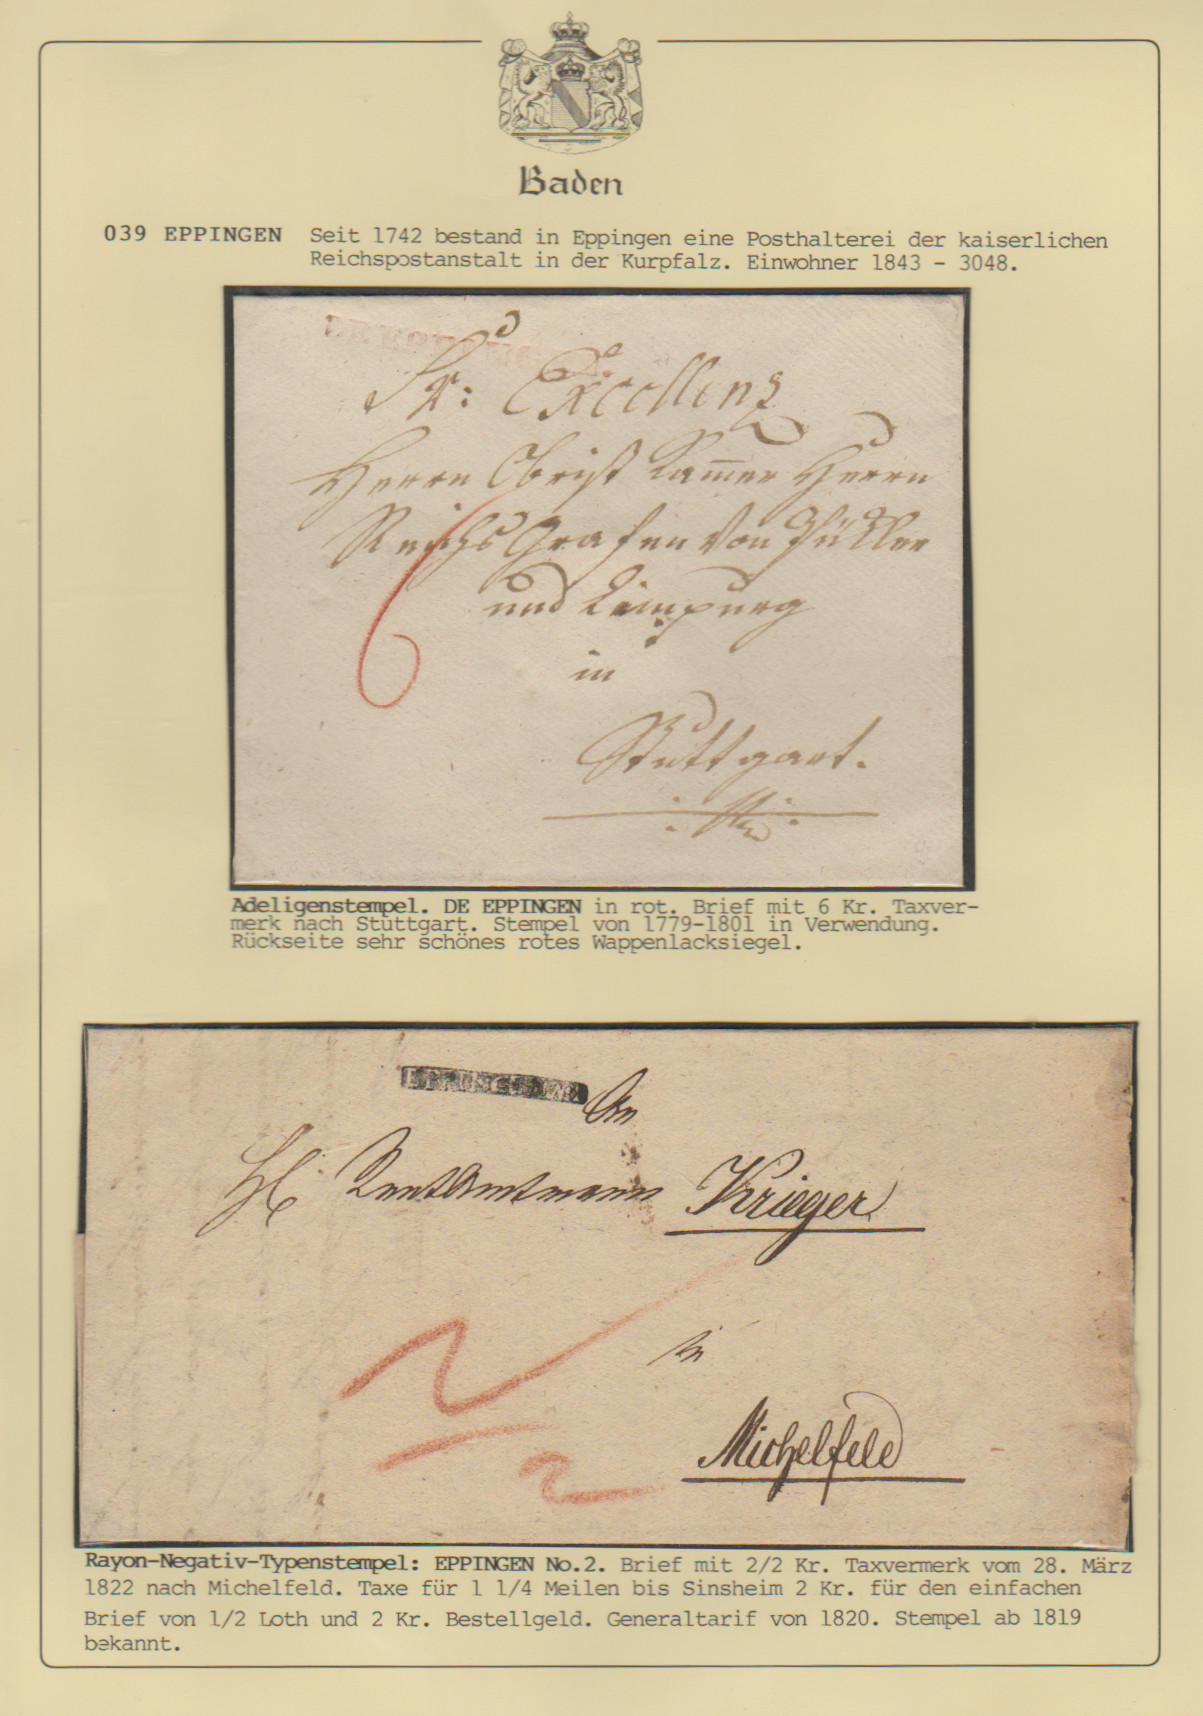 Baden
039 EPPINGEN Seit 1742 bestand in Eppingen eine Posthalterei der kaiserlichen
Reichspostanstalt in der Kurpfalz. Einwohner 1843 - 3048.
DE EPPINGEN.
Sr: Excellenz
Herrn Obrist Kammer Herrn
Reichs Grafen von Pükler
und Limpurg
in
Stuttgart.
6
Adeligenstempel. DE EPPINGEN in rot. Brief mit 6 Kr. Taxver-
merk nach Stuttgart. Stempel von 1779-1801 in Verwendung.
Rückseite sehr schönes rotes Wappenlacksiegel.
EPPINGEN No2
An
H. Rentamtmann Krieger
in
Michelfeld
2
2
Rayon-Negativ-Typenstempel: EPPINGEN No.2. Brief mit 2/2 Kr. Taxvermerk vom 28. März
1822 nach Michelfeld. Taxe für 1 1/4 Meilen bis Sinsheim 2 Kr. für den einfachen
Brief von 1/2 Loth und 2 Kr. Bestellgeld. Generaltarif von 1820. Stempel ab 1819
bekannt.